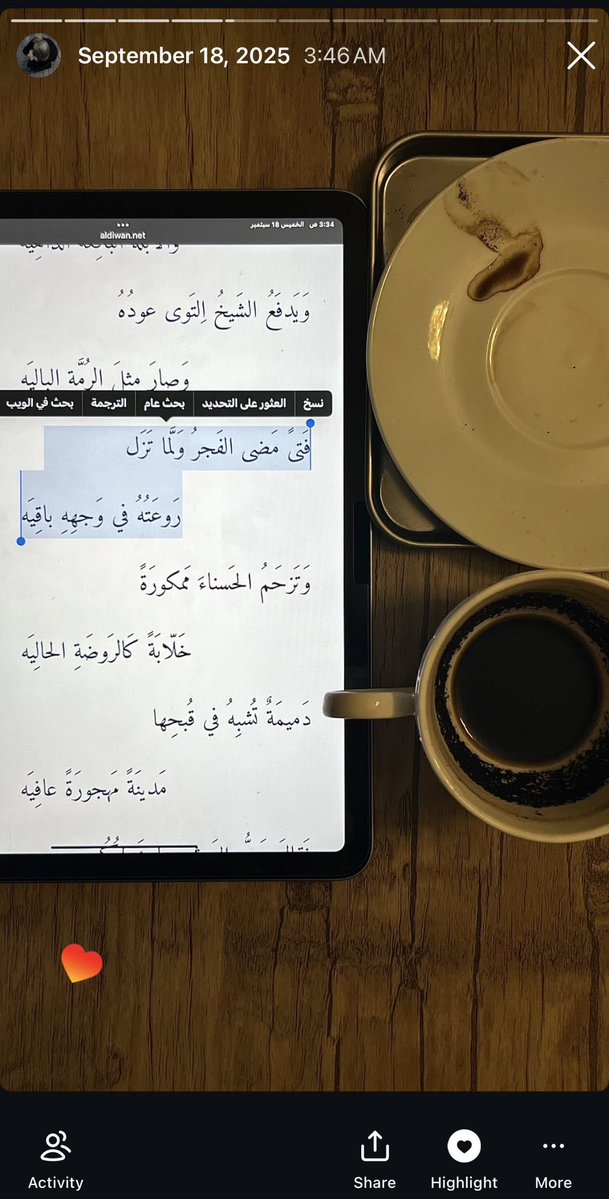 September 18, 2025 3:46 AM
3:34 ص الخميس 18 سبتمبر
aldiwan.net
وَيَدفَعُ الشَيخُ اِلتَوى عودُهُ
وَصارَ مثلَ الرُمَّة الباليَه
نسخ العثور على التحديد بحث عام الترجمة بحث في الويب
فَتىً مَضى الفَجرُ وَلَمّا تَزَل
رَوعَتُهُ في وَجهِهِ باقِيَه
وَتَزحَمُ الحَسناءَ مَمكورَةً
خَلّابَةً كَالرَوضَةِ الحالِيَه
دَميمَةٌ تُشبِهُ في قُبحِها
مَدينَةً مَهجورَةً عافِيَه
Activity
Share
Highlight
More